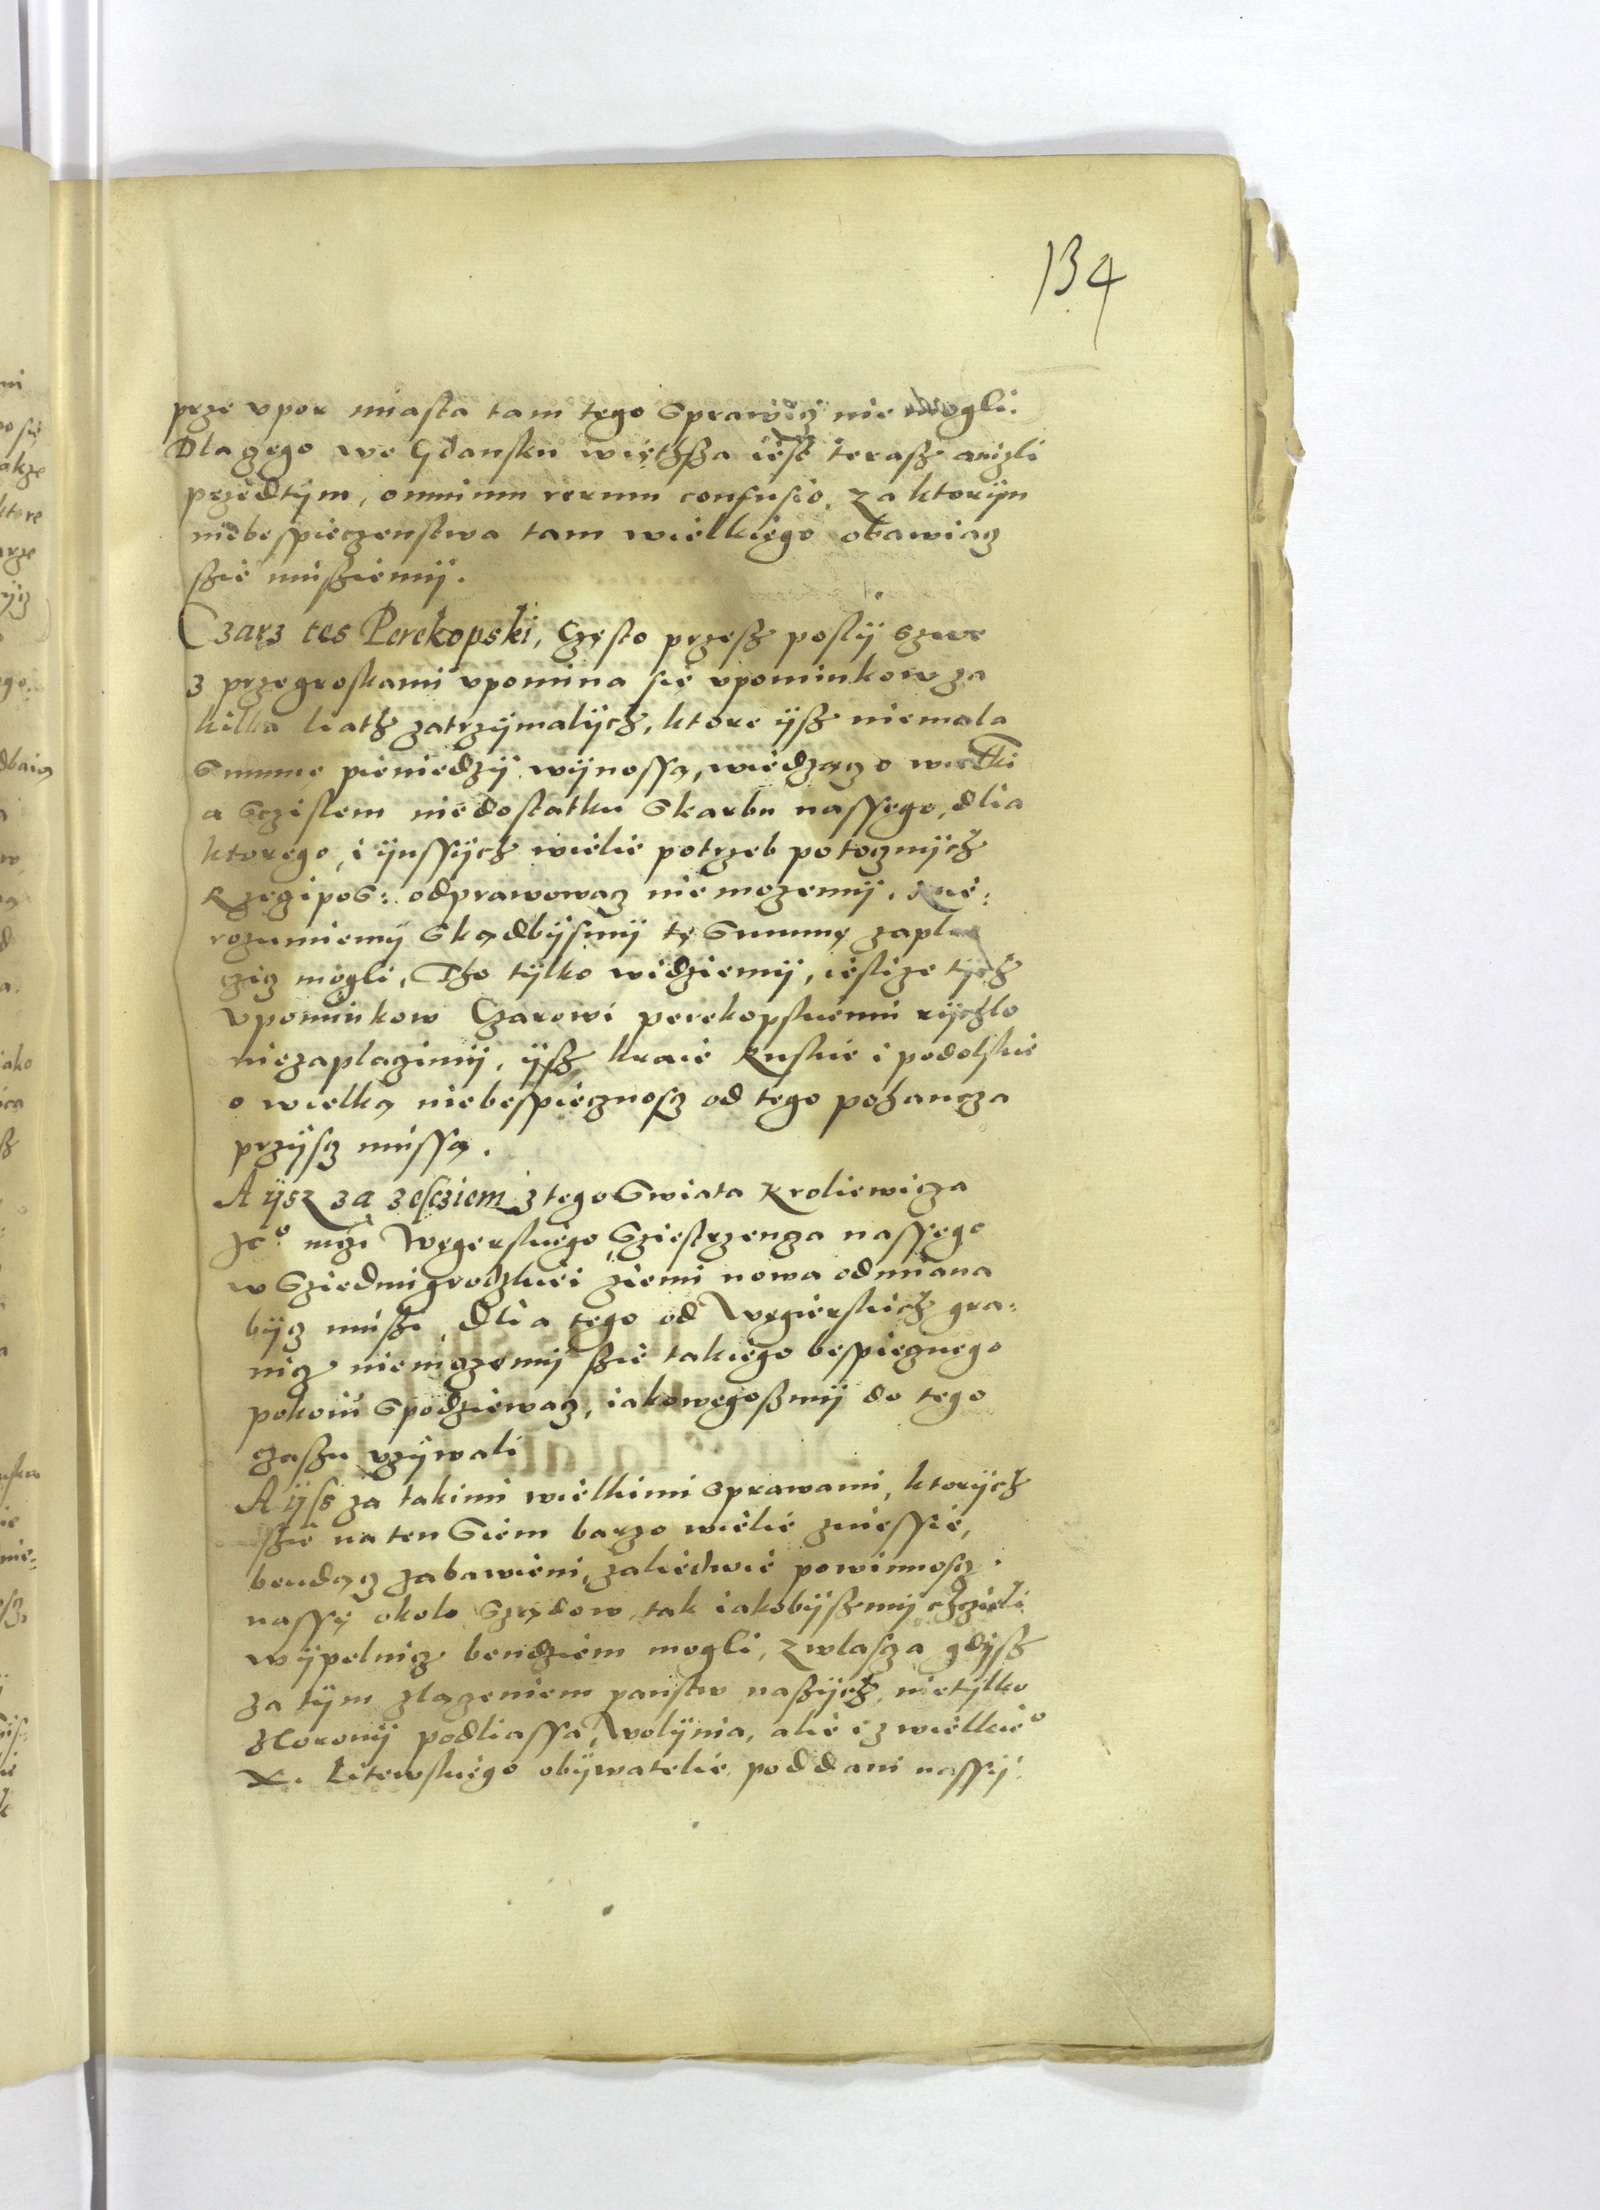 134
prze vpor miasta tam tego sprawicz nie mogli.
Dla czego we Gdansku wietzsza iest terasz anizli
przedtym, omnium rerum confusio, za ktorijm
niebespieczenstwa tam wielkiego obawiacz
szie musziemij.
Czarz tes Perekopski, Często przesz poslij szwe
z przegroskami vpomina sie vpominkow za
kilka liath zatrzijmalijch, ktore ijsz niemala
summe pieniedzij wijnossą, wiedzącz o wielki
a sczislem niedostatku skarbu nassego, dlia
ktorego, i ijnssijch wielie potrzeb potocznijch
Rzeczipos: odprawowacz nie mozemij. Nie:
rozumiemij skądbijsmij tę summę zapla
czicz mogli, Tho tijlko widziemij, iesli ze tijch
vpominkow Czarowi perekopskiemu rijchlo
niezaplaczimij, ijsz kraie Ruskie i podolskie
o wielką niebespiecznoscz od tego pohancza
przijscz mussą.
A ijsz za zesczięm z tego Swiata Kroliewicza
Jeo mczi Węgerskiego, Sziestrzencza nassego
w Sziedmigrodzkiei ziemi nowa odmiana
bijcz muszi, dlia tego od Węgierskich gra:
nicz niemozemij szie takiego bespiecznego
pokoiu spodziewacz, iakowegoszmij do tego
czaszu vzijwali
A ijss za takimi wielkimi sprawami, ktorijch
szie na ten Siem barzo wielie zniessie,
bendącz zabawieni, zaliedwie powinnoscz
nassę okolo Sządow, tak iakobijszmij chczieli
wijpelnicz bendziem mogli, zwlascza gdijsz
za tijm zlaczeniem panstw naszijch, nietijlko
z Coronij podliassa, Wolijnia, alie i z wielkieo
X. Litewskiego obijwatelie, poddani nassij